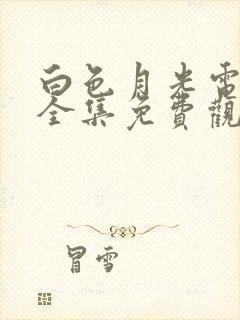 白色月光電
全集免費觀
冒雪